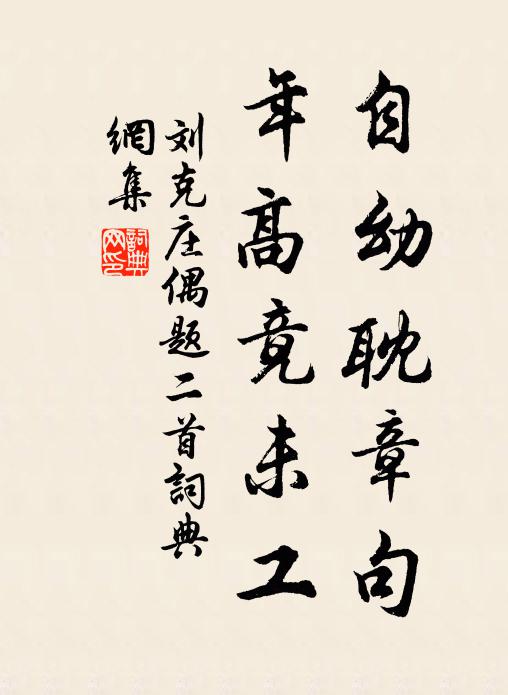 自幼耽章句
年高竟未工
刘克庄偶题二首詞典
網集
詞典
网印